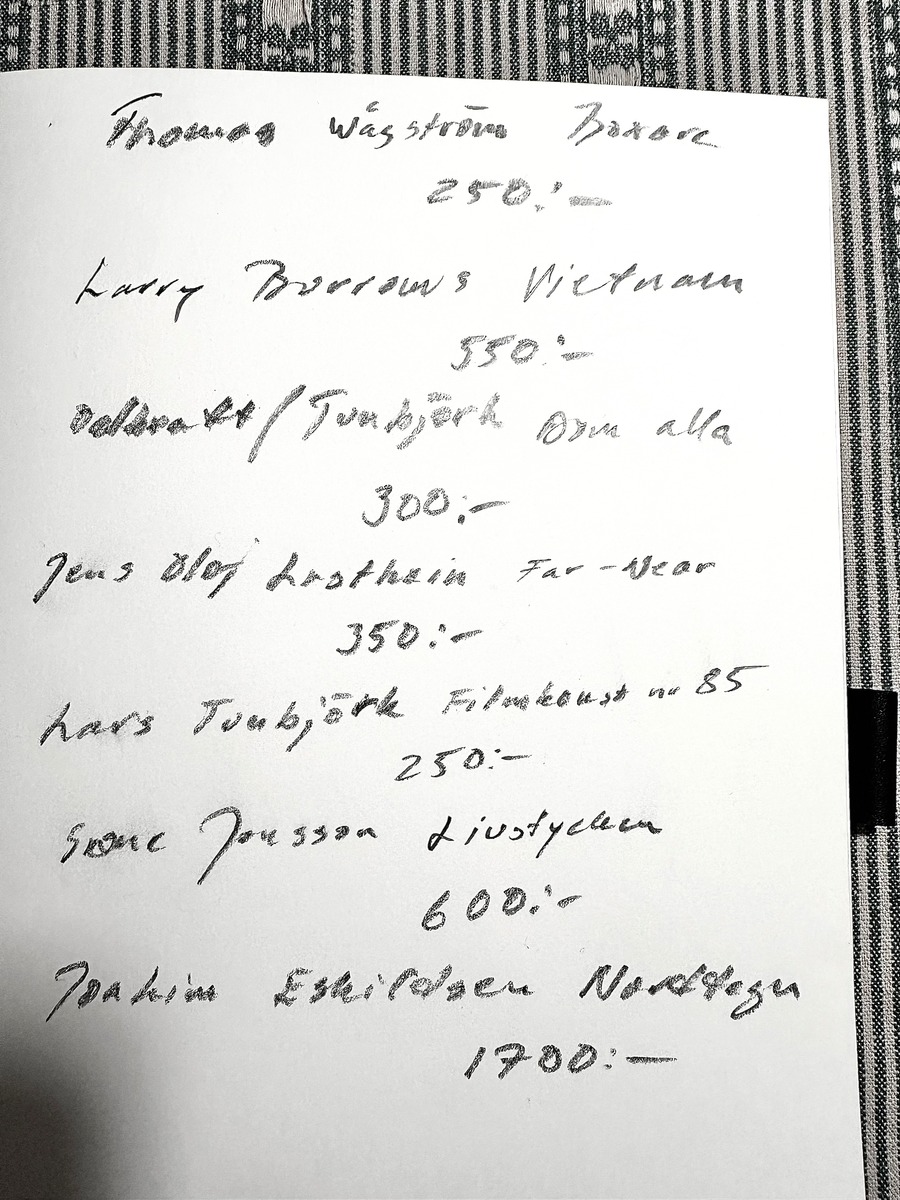 Thomas Wågström Boxare
250:-
Larry Burrows Vietnam
550:-
Odbratt / Tunbjörk Dom alla
300:-
Jens Olof Lasthein Far-Near
350:-
Lars Tunbjörk Filmkonst nr 85
250:-
Sune Jonsson Livstycken
600:-
Joakim Eskildsen Nordtegn
1700:-